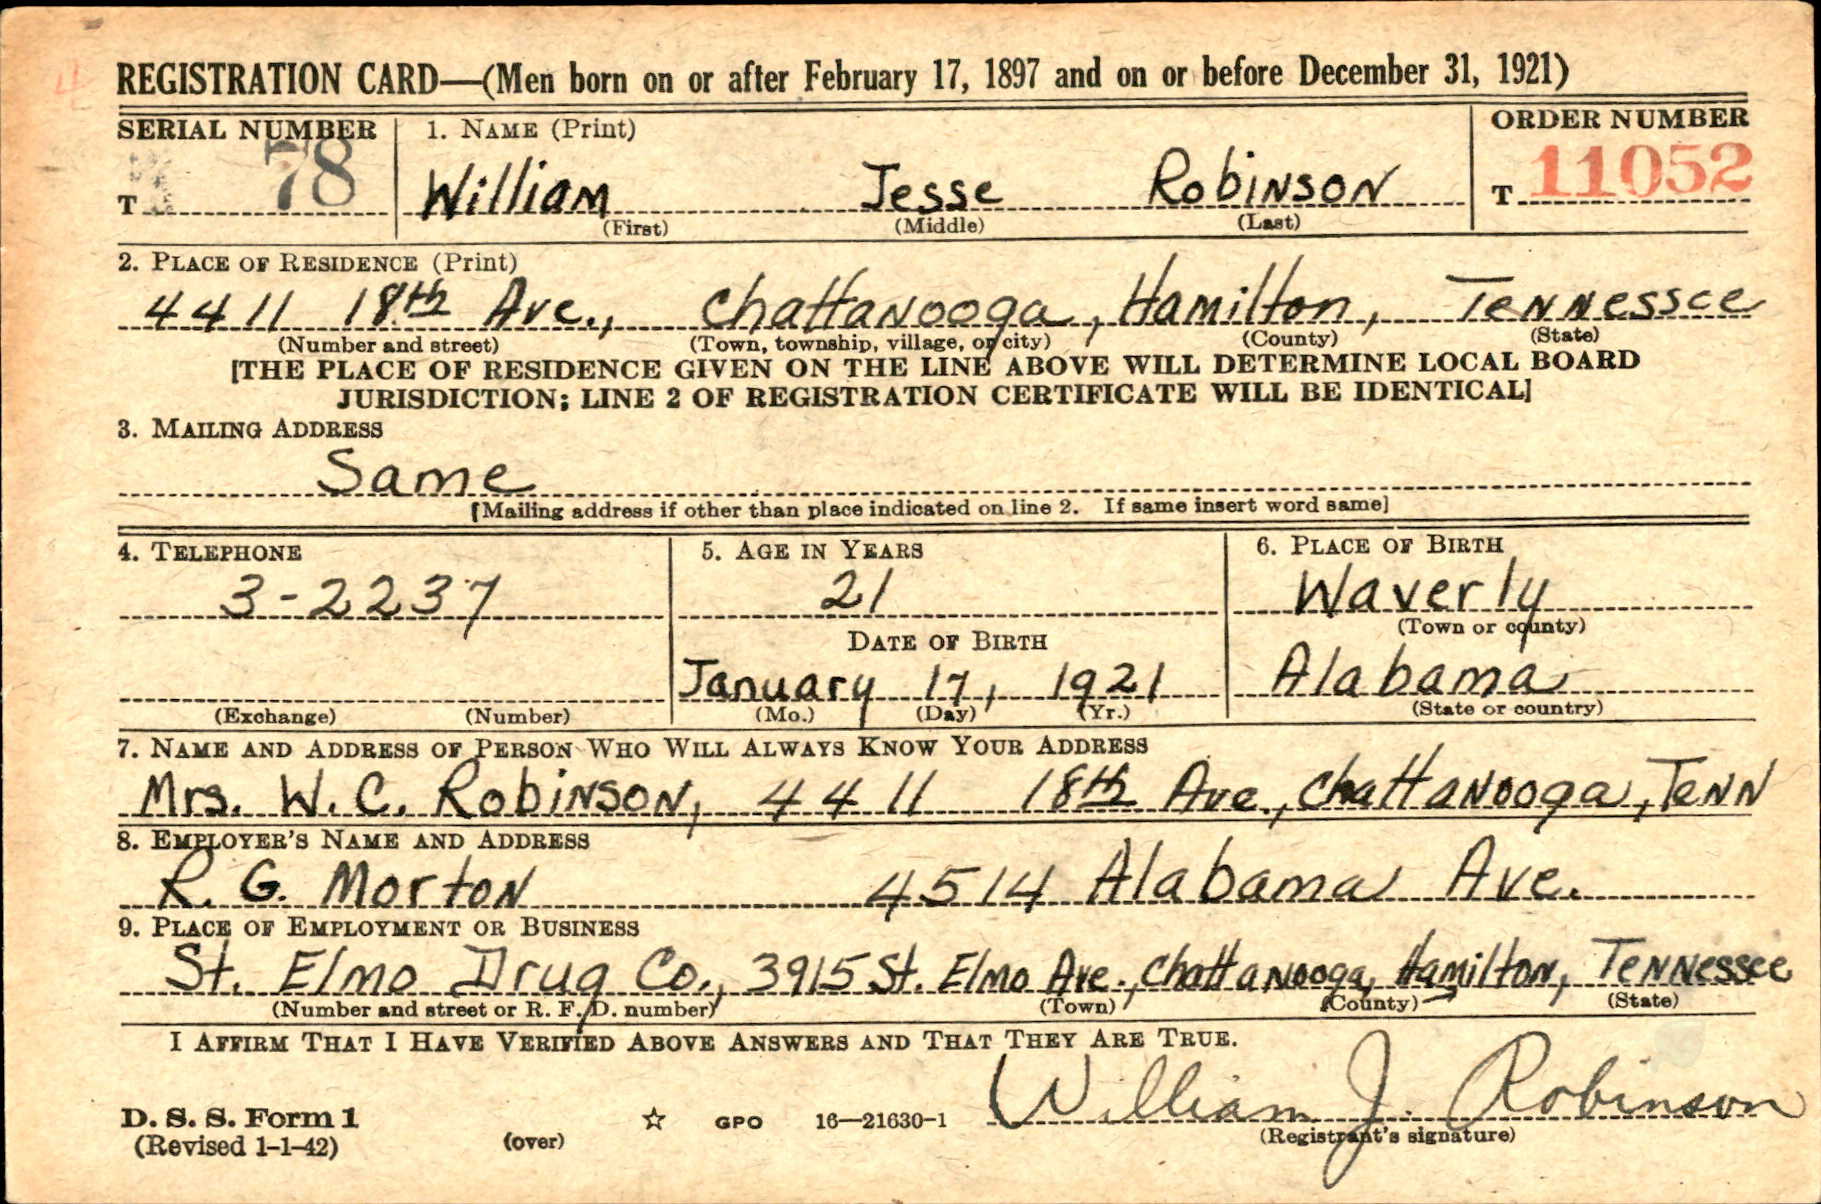 REGISTRATION CARD—(Men born on or after February 17, 1897 and on or before December 31, 1921)
SERIAL NUMBER 1. NAME (Print) ORDER NUMBER
T 78 William Jesse Robinson T 11052
(First) (Middle) (Last)
2. PLACE OF RESIDENCE (Print)
4411 18th Ave., Chattanooga, Hamilton, Tennessee
(Number and street) (Town, township, village, or city) (County) (State)
[THE PLACE OF RESIDENCE GIVEN ON THE LINE ABOVE WILL DETERMINE LOCAL BOARD
JURISDICTION; LINE 2 OF REGISTRATION CERTIFICATE WILL BE IDENTICAL]
3. MAILING ADDRESS
Same
[Mailing address if other than place indicated on line 2. If same insert word same]
4. TELEPHONE 5. AGE IN YEARS 6. PLACE OF BIRTH
3-2237 21 Waverly
(Town or county)
DATE OF BIRTH
January 17, 1921 Alabama
(Exchange) (Number) (Mo.) (Day) (Yr.) (State or country)
7. NAME AND ADDRESS OF PERSON WHO WILL ALWAYS KNOW YOUR ADDRESS
Mrs. W. C. Robinson, 4411 18th Ave., Chattanooga, Tenn
8. EMPLOYER'S NAME AND ADDRESS
R. G. Morton 4514 Alabama Ave.
9. PLACE OF EMPLOYMENT OR BUSINESS
St. Elmo Drug Co., 3915 St. Elmo Ave., Chattanooga, Hamilton, Tennessee
(Number and street or R. F. D. number) (Town) (County) (State)
I AFFIRM THAT I HAVE VERIFIED ABOVE ANSWERS AND THAT THEY ARE TRUE.
William J. Robinson
D. S. S. Form 1 ☆ GPO 16—21630-1
(Revised 1-1-42) (over) (Registrant's signature)